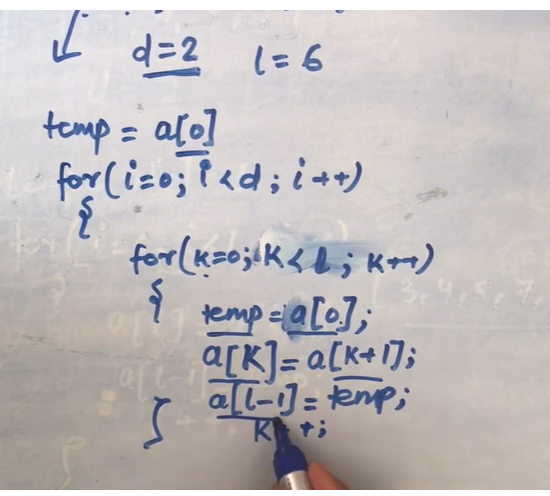 d=2 l=6
temp = a[0]
for(i=0; i<d; i++)
{
for(k=0; k<l; k++)
{
temp=a[0];
a[k]=a[k+1];
a[l-1]=temp;
}
k++;